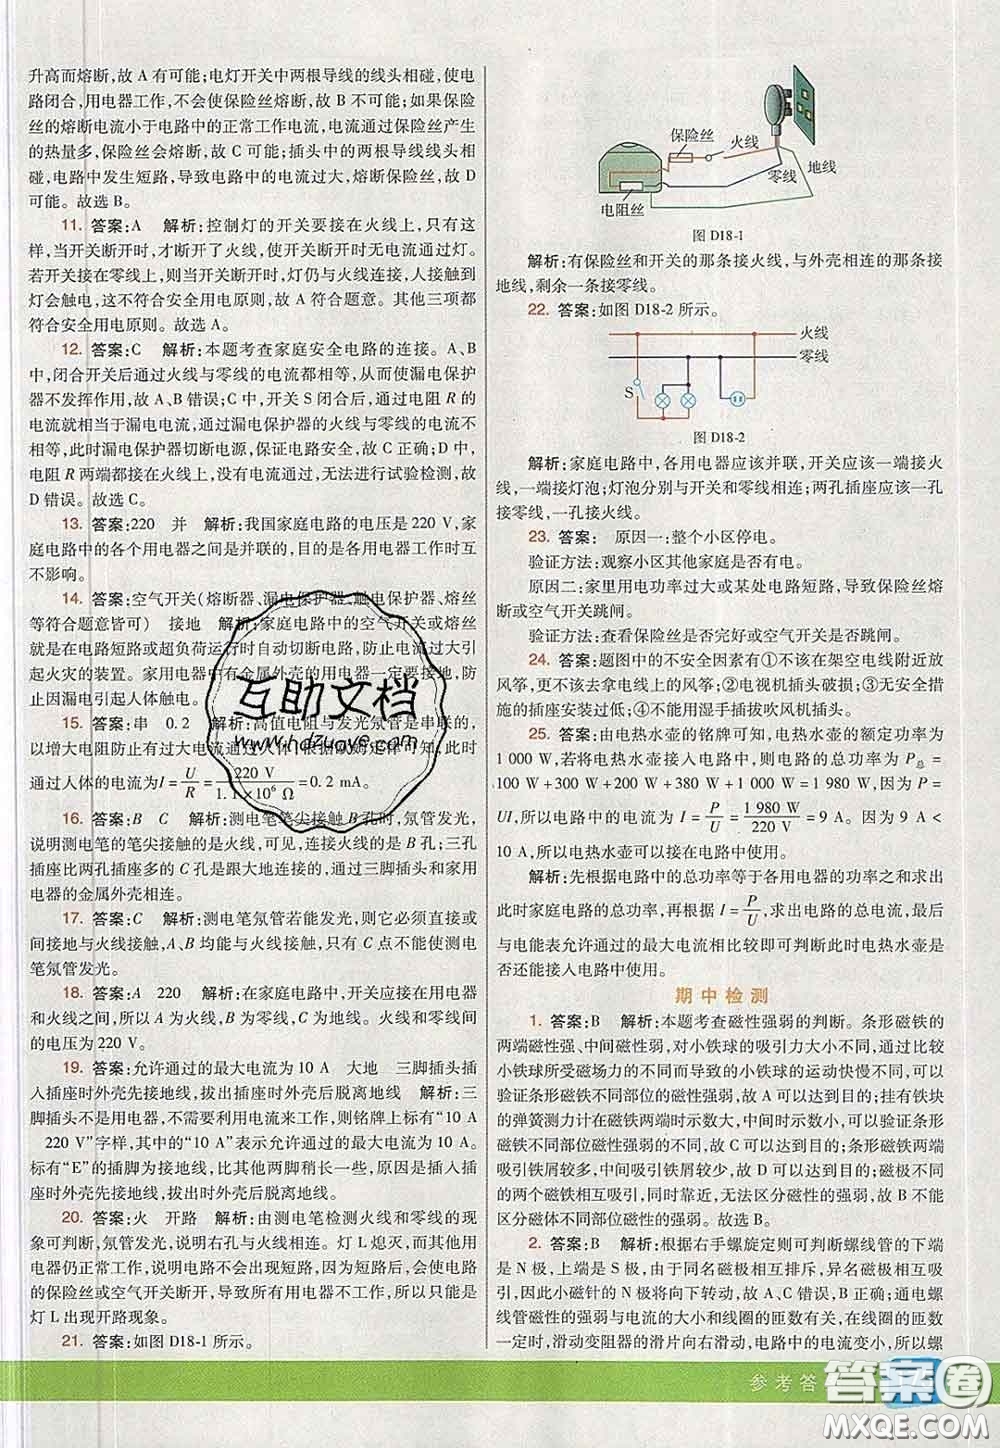 升高而熔断,故 A 有可能;电灯开关中两根导线的线头相碰,使电
路闭合,用电器工作,不会使保险丝熔断,故 B 不可能;如果保险
丝的熔断电流小于电路中的正常工作电流,电流通过保险丝产生
的热量多,保险丝会熔断,故 C 可能;插头中的两根导线线头相
碰,电路中发生短路,导致电路中的电流过大,熔断保险丝,故 D
可能。故选 B。
11. 答案:A 解析:控制灯的开关要接在火线上,只有这
样,当开关断开时,才断开了火线,使开关断开时无电流通过灯。
若开关接在零线上,则当开关断开时,灯仍与火线相连,人接触到
灯会触电,故 A 不符合安全用电原则,故 A 符合题意。其他三项都
符合安全用电原则。故选 A。
12. 答案:C 解析:本题考查家庭安全电路的连接。A、B
中,闭合开关后通过火线与零线的电流都相等,从而使漏电保护
器不发挥作用,故 A、B 错误;C 中,开关 S 闭合后,通过电阻 R 的
电流就相当于漏电电流,通过漏电保护器的火线与零线的电流不
相等,此时漏电保护器切断电源,保证电路安全,故 C 正确;D 中,
电阻 R 两端都接在火线上,没有电流通过,无法进行试验检测,故
D 错误。故选 C。
13. 答案:220 并 解析:我国家庭电路的电压是 220 V,家
庭电路中的各个用电器之间是并联的,目的是各用电器工作时互
不影响。
14. 答案:空气开关(熔断器、漏电保护器、触电保护器、熔丝
等符合题意皆可) 接地 解析:家庭电路中的空气开关或熔丝
就是在电路短路或超负荷运行时自动切断电路,防止电流过大引
起火灾的装置。家用电器中有金属外壳的用电器一定要接地,防
止因漏电引起人体触电。
15. 答案:串 0.2 解析:高值电阻与发光氖管是串联的,
以增大电阻防止有过大电流通过人体,根据欧姆定律可知,此时
通过人体的电流为I=U/R=220 V/1.1×10⁶ Ω=0.2 mA。
16. 答案:B C 解析:测电笔笔尖接触 B 孔时,氖管发光,
说明测电笔的笔尖接触的是火线,可知,连接火线的是 B 孔;三孔
插座比两孔插座多的 C 孔是跟大地连接的,通过三脚插头和家用
电器的金属外壳相连。
17. 答案:C 解析:测电笔氖管若能发光,则它必须直接或
间接地与火线接触,A、B 均能与火线接触,只有 C 点不能使测电
笔氖管发光。
18. 答案:A 220 解析:在家庭电路中,开关应接在用电器
和火线之间,所以 A 为火线,B 为零线,C 为地线。火线和零线间
的电压为 220 V。
19. 答案:允许通过的最大电流为 10 A 大地 三脚插头插
入插座时外壳先接地线,拔出插座时外壳后脱离地线 解析:三
脚插头不是用电器,不需要利用电流来工作,则铭牌上标有“10 A
220 V”字样,其中的“10 A”表示允许通过的最大电流为 10 A。
标有“E”的插脚为接地线,比其他两脚稍长一些,原因是插头插入
插座时外壳先接地线,拔出时外壳后脱离地线。
20. 答案:火 开路 解析:由测电笔检测火线和零线的现
象可判断,氖管发光,说明右孔与火线相连。灯 L 熄灭,而其他用
电器仍正常工作,说明电路不会出现短路,因为短路会使电路中
的保险丝或空气开关断开,导致所有用电器不能工作,所以只能是
灯 L 出现开路现象。
21. 答案:如图 D18-1 所示。
保险丝 火线
零线 地线
电阻丝
图 D18-1
解析:有保险丝和开关的那条接火线,与外壳相连的那条接
地线,剩余一条接零线。
22. 答案:如图 D18-2 所示。
火线
零线
S
图 D18-2
解析:家庭电路中,各用电器应该并联,开关应该一端接火
线,一端接灯泡;灯泡分别与开关和零线相连;两孔插座应该一孔
接零线,一孔接火线。
23. 答案: 原因一:整个小区停电。
验证方法:观察小区其他家庭是否有电。
原因二:家里用电功率过大或某处电路短路,导致保险丝熔
断或空气开关跳闸。
验证方法:查看保险丝是否完好或空气开关是否跳闸。
24. 答案:题图中的不安全因素有①不该在架空电线附近放
风筝,更不该去拿电线上的风筝;②电视机插头破损;③没有安全措
施的插座安装过低;④不能用湿手插拔吹风机插头。
25. 答案:由电热水壶的铭牌可知,电热水壶的额定功率为
1 000 W,若将电热水壶接入电路中,则电路的总功率为 P总=
100 W+300 W+200 W+380 W+1 000 W=1 980 W,因为 P=
UI,所以电路中的电流为 I=P/U=1 980 W/220 V=9 A。因为 9 A<
10 A,所以电热水壶可以接在电路中使用。
解析:先根据电路中的总功率等于各用电器的功率之和求出
此时家庭电路的总功率,再根据 I=P/U,求出电路的总电流,最后
与电能表允许通过的最大电流相比较即可判断此时电热水壶是
否还能接入电路中使用。
期中检测
1. 答案:B 解析:本题考查磁性强弱的判断。条形磁铁的
两端磁性强、中间磁性弱,对小铁球的吸引力大小不同,通过比较
小铁球所受磁场力的不同而导致的小铁球的运动快慢不同,可以
验证条形磁铁各部分的磁性强弱,故 A 可以达到目的;挂有铁块
的弹簧测力计在磁铁两端时示数大,中间时示数小,可以验证条形
磁铁不同部位磁性强弱的不同,故 C 可以达到目的;条形磁铁两端
吸引铁屑较多,中间吸引铁屑较少,故 D 可以达到目的;磁极不同
的两个磁铁相互吸引,但同一位置处,无法区分磁性的强弱,故 B 不能
区分条形磁铁不同部位磁性的强弱。故选 B。
2. 答案:B 解析:根据右手螺旋定则可判断螺线管的下端
是 N 极,上端是 S 极,由于同名磁极相互排斥,异名磁极相互吸
引,因此小磁针的 N 极将向下转动,故 A 正确;通电螺
线管磁性的强弱与电流的大小和线圈的匝数有关,在线圈的匝数
一定时,滑动变阻器的滑片向右滑动,电路中的电流变小,所以螺
参考答
互助文档
www.hdzuoye.com
答案圈
MXQE.COM